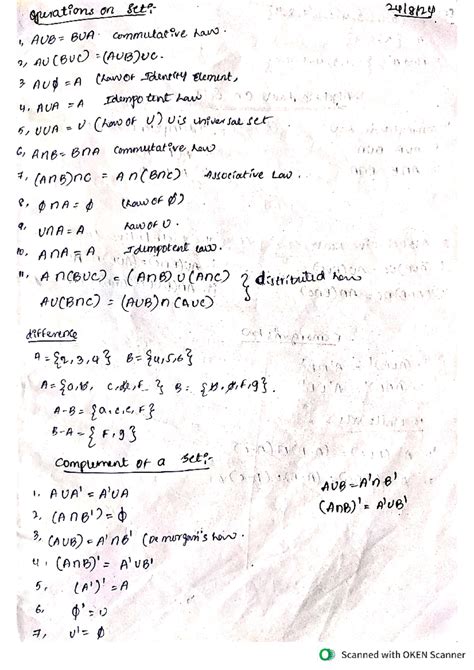 Operations on Set:- 24/8/24
1, A∪B = B∪A commutative Law.
2, A∪(B∪C) = (A∪B)∪C.
3 A∪ϕ = A (Law of Identity Element,
4, A∪A = A Idempotent Law
5, U∪A = U (Law of U) U is universal set
6, A∩B = B∩A commutative Law
7, (A∩B)∩C = A∩(B∩C) Associative Law.
8, ϕ∩A = ϕ (Law of ϕ)
9, U∩A = A Law of U.
10, A∩A = A Idempotent Law.
11, A∩(B∪C) = (A∩B)∪(A∩C) } distributed Law
A∪(B∩C) = (A∪B)∩(A∪C)
difference
A = {2,3,4} B = {4,5,6}
B = {
A-B = {a,c,
B-A = { F,g}
Complement of a Set:-
1. A∪A' = A'∪A
A∪B = A'∩B'
2, (A∩B') = ϕ
(A∩B)' = A'∪B'
3, (A∪B) = A'∩B' (De morgan's Law.
4. (A∩B)' = A'∪B'
5, (A')' = A
6. ϕ' = U
7, U' = ϕ
Scanned with OKEN Scanner